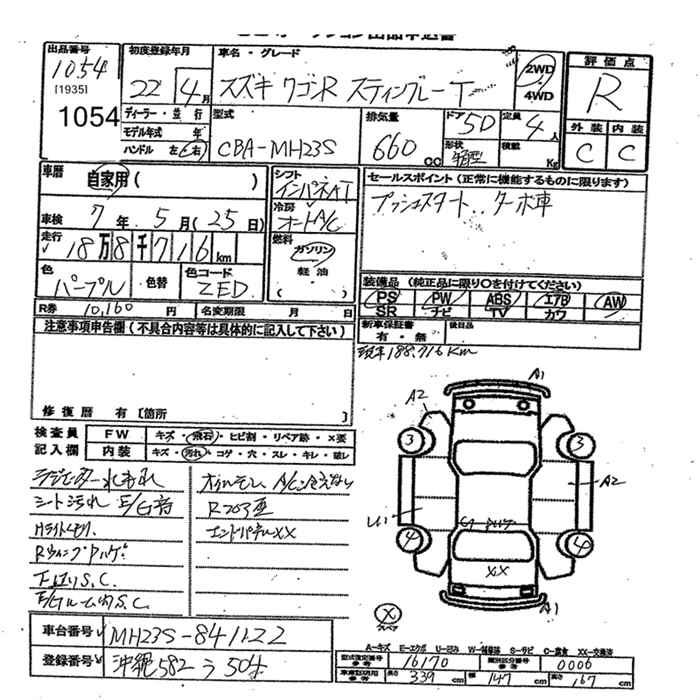 出品番号 初度登録年月 車名・グレード 評価点
1054 22年 4月 スズキ ワゴンR スティングレー T 2WD 4WD R
[1935]
1054
ディーラー・並行 型式 排気量 ドア 5D 定員 4人 外装 内装
モデル年式 年 形状 箱型 積載 Kg
ハンドル 左 右 CBA-MH23S 660cc C C
車歴 自家用( ) シフト インパネAT セールスポイント(正常に機能するものに限ります)
車検 7年 5月(25日) 冷房 オートA/C プッシュスタート、ターボ車
走行 18万8千716km 燃料 ガソリン
軽油
色 パープル 色替 色コード ZED 装備品(純正品に限り○を付けてください)
PS PW ABS エアB AW
SR ナビ TV カワ
R券 10,160円 名変期限 月 日 新車保証書 後日品
有・無
注意事項申告欄(不具合内容等は具体的に記入して下さい)
現車188,716Km
修復歴 有〔箇所 〕
検査員 FW キズ・飛石・ヒビ割・リペア跡・X要
記入欄 内装 キズ・汚れ・コゲ・穴・スレ・キレ・破レ
ラジエター水もれ
シート汚れ E/G音
Hライトくもり
下廻りS.C.
E/Gルーム内S.C.
R703歪
エンドパネルXX
A1
A2
3 3
A2
U1
4 4
XX
A1
X
スペア
A-キズ E-エクボ U-凹み W-補修跡 S-サビ C-腐食 XX-交換済
車台番号 MH23S-841122
型式指定番号 参考 16170 類別区分番号 参考 0006
登録番号 沖縄582う504
長さ 339cm 幅 147cm 高さ 167cm